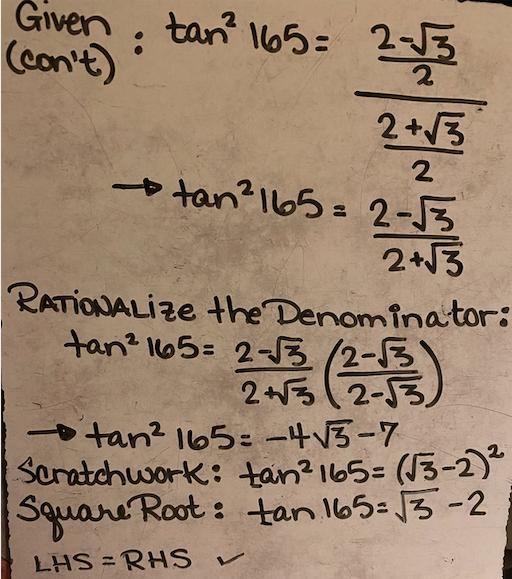 Given : tan² 165 = 2-√3
(con't) 2
2+√3
2
→ tan² 165 = 2-√3
2+√3
RATIONALize the Denominator:
tan² 165 = 2-√3 (2-√3)
2+√3 (2-√3)
→ tan² 165 = -4√3 -7
Scratchwork: tan² 165 = (√3-2)²
Square Root: tan 165 = √3 -2
LHS = RHS ✓